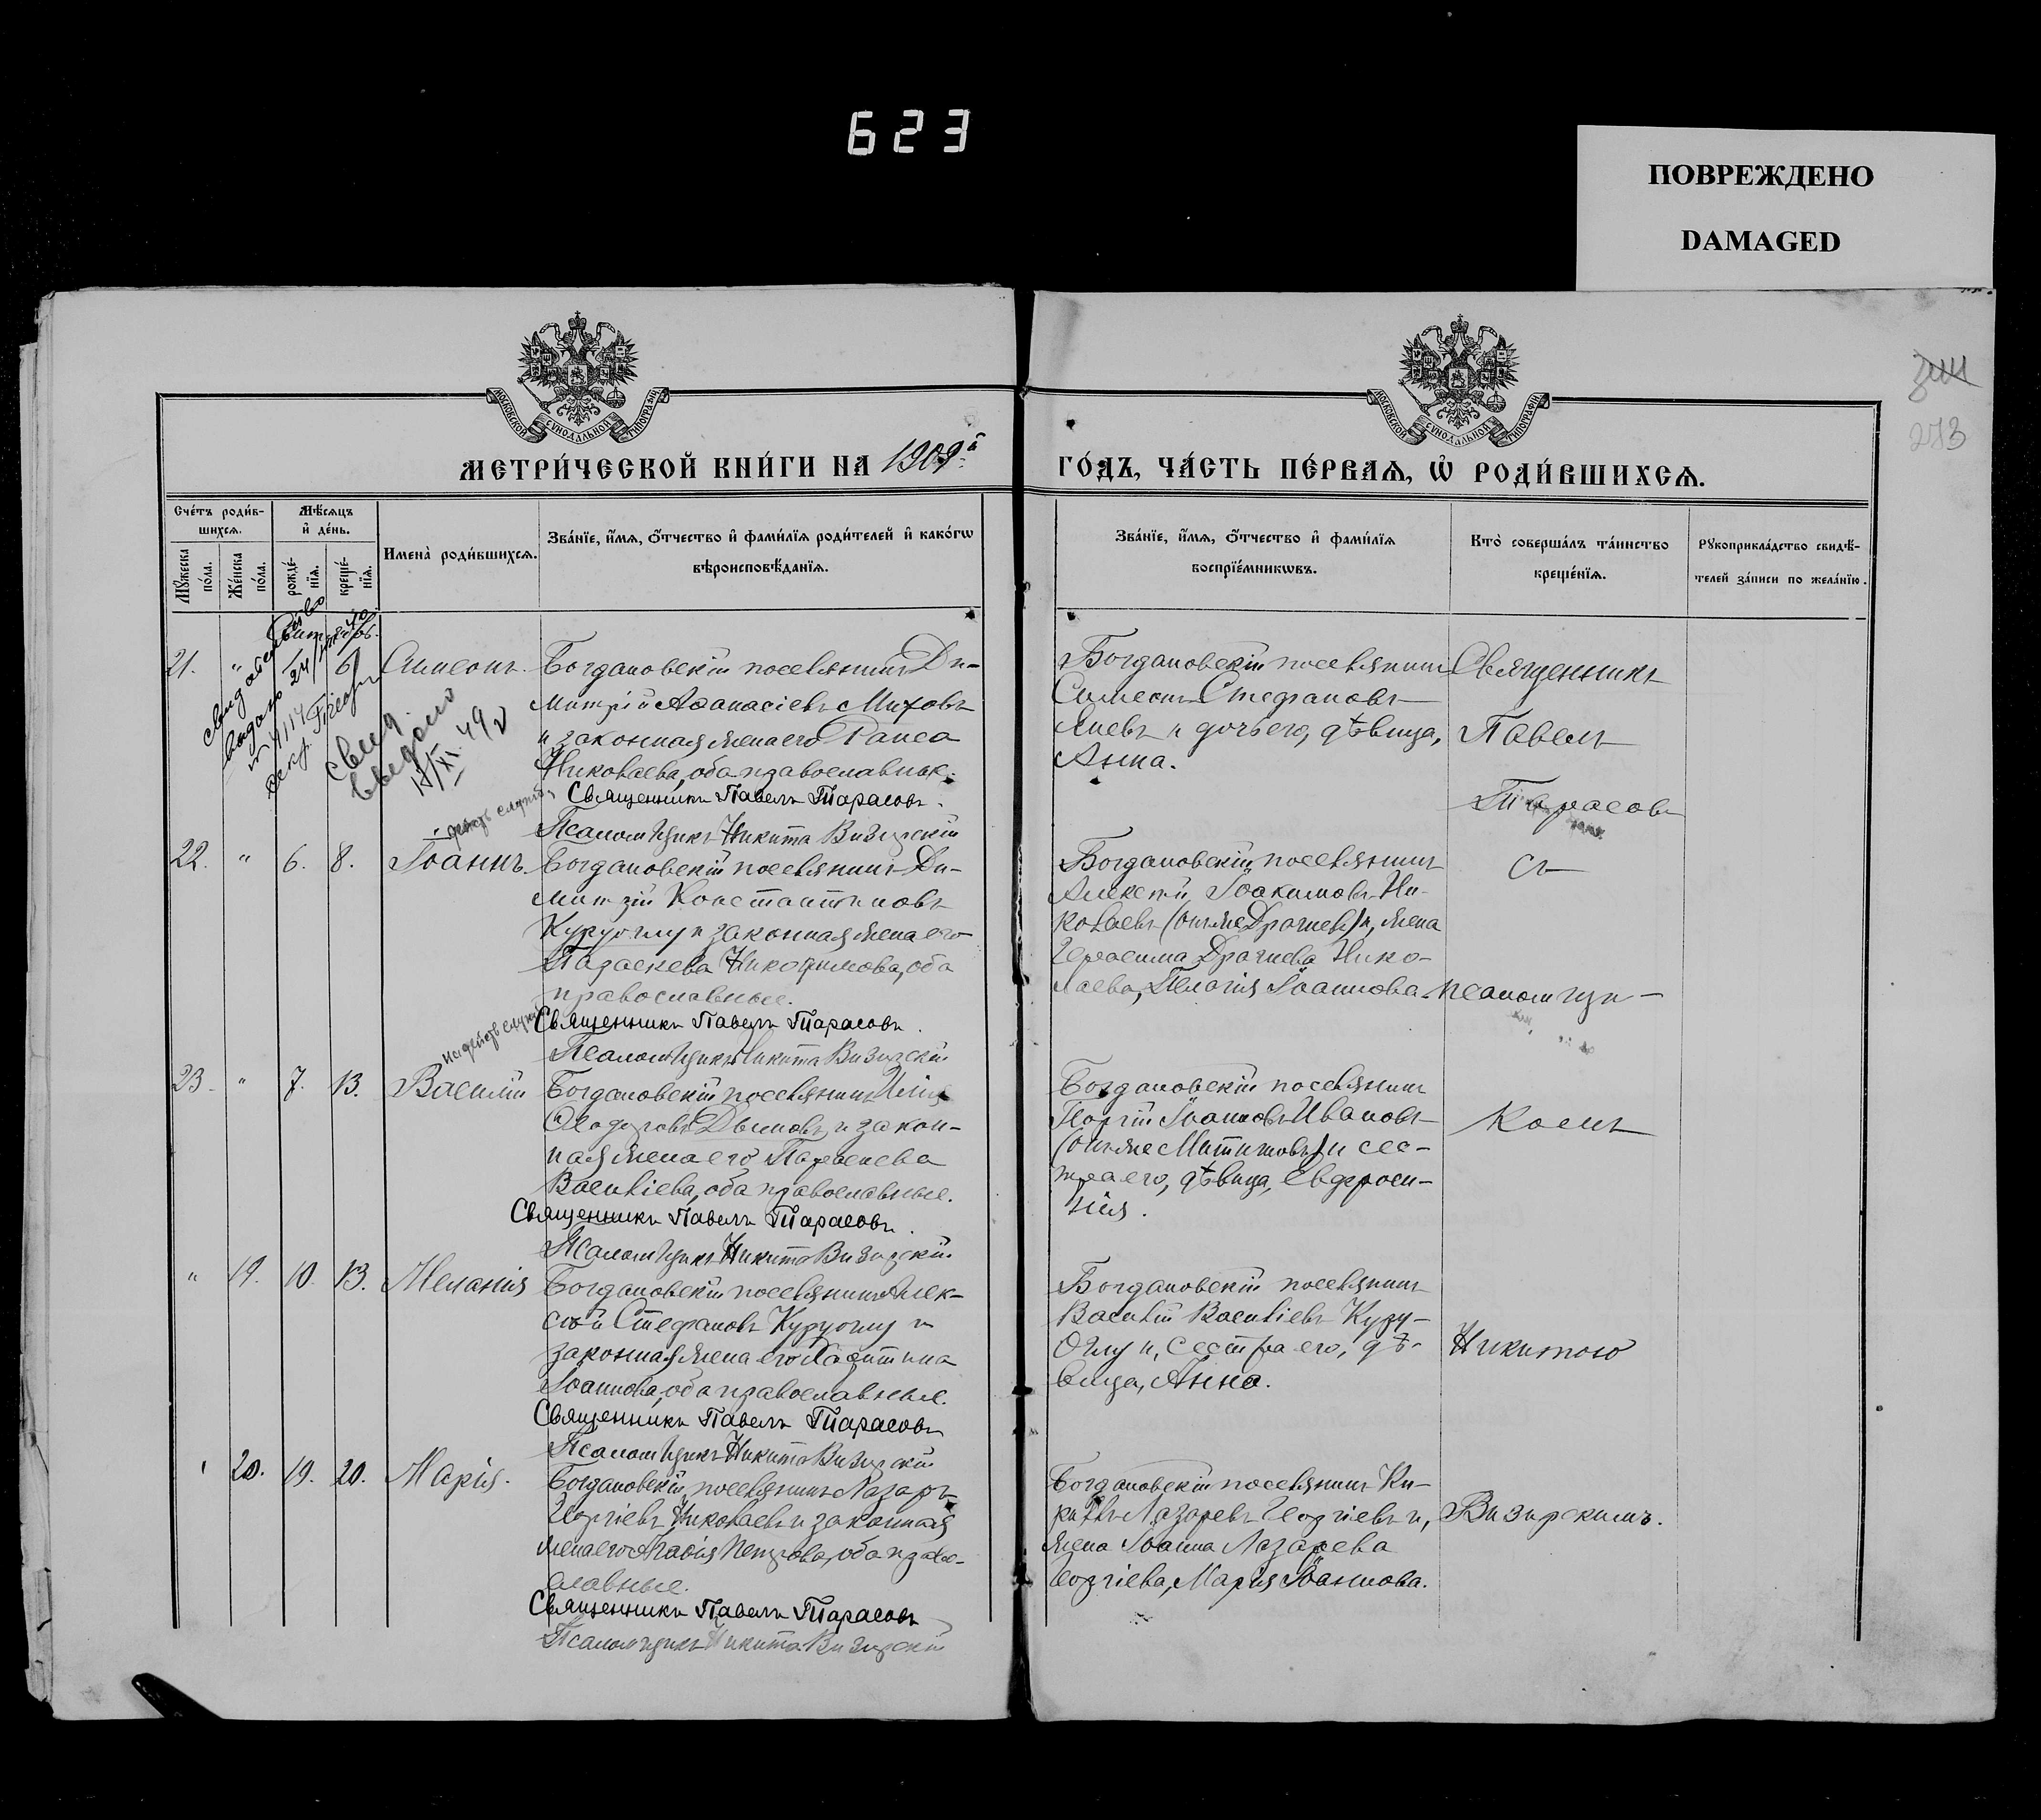 623
ПОВРЕЖДЕНО
DAMAGED
273
МОСКОВСКОЙ СѴНОДАЛЬНОЙ ТИПОГРАФІИ
МОСКОВСКОЙ СѴНОДАЛЬНОЙ ТИПОГРАФІИ
МЕТРИ́ЧЕСКОЙ КНИ́ГИ НА 1909й
ГО́ДЪ, ЧА́СТЬ ПЕ́РВАѦ, Ѡ҆ РОДИ́ВШИХСѦ.
Сче́тъ роди́в-
шихсѧ.
Мѣ́сѧцъ
и҆ де́нь.
Мꙋ́жеска
по́ла.
Же́нска
по́ла.
рожде́-
нїѧ.
креще́-
нїѧ.
Имена̀ роди́вшихсѧ.
Зва́нїе, и҆́мѧ, ѻ҆́тчество и҆ фами́лїѧ роди́телей и҆ како́гѡ
вѣроисповѣ́данїѧ.
Зва́нїе, и҆́мѧ, ѻ҆́тчество и҆ фами́лїѧ
воспрїе́мникѡвъ.
Кто̀ соверша́лъ та́инство
креще́нїѧ.
Рꙋкоприкла́дство свидѣ́-
телей за́писи по жела́нїю.
21. " 6 Симеонъ. Богдановскій поселянинъ Ди-
митрій Аѳанасіевъ Митовъ
и законная жена его Раиса
Николаева, оба православные.
Священникъ Павелъ Тарасовъ.
Псаломщикъ Никита Визирскій
Богдановскій поселянинъ
Симеонъ Стефановъ
Яневъ и дочь его, дѣвица,
Анна.
Священникъ
Павелъ
Тарасовъ
свид.
выдано
49
22. " 6. 8. Іоаннъ. Богдановскій поселянинъ Ди-
митрій Константиновъ
Куруоглу и законная жена его
Параскева Никодимова, оба
православные.
Священникъ Павелъ Тарасовъ.
Псаломщикъ Никита Визирскій
Богдановскій поселянинъ
Алексѣй Іоакимовъ Ни-
колаевъ (онъ же Драгневъ) и, жена
Герасима Драгнева Нико-
лаева, Пелагія Іоаннова.
съ
псаломщи-
23. " 7. 13. Василій Богдановскій поселянинъ Илія
Ѳеодоровъ Дымовъ и закон-
ная жена его Параскева
Васильева, оба православные.
Священникъ Павелъ Тарасовъ.
Псаломщикъ Никита Визирскій
Богдановскій поселянинъ
Георгій Іоанновъ Ивановъ
(онъ же Митиновъ) и сес-
тра его, дѣвица, Евфроси-
нія.
комъ
" 19. 10. 13. Меланія Богдановскій поселянинъ Алек-
сѣй Стефановъ Куруоглу и
законная жена его
Іоаннова, оба православные.
Священникъ Павелъ Тарасовъ
Псаломщикъ Никита Визирскій
Богдановскій поселянинъ
Василій Васильевъ Куру-
Оглу и, сестра его, дѣ-
вица, Анна.
Никитою
20. 19. 20. Марія. Богдановскій поселянинъ Лазарь
Георгіевъ Николаевъ и законная
жена его Агафія Петрова, оба право-
славные.
Священникъ Павелъ Тарасовъ
Псаломщикъ Никита Визирскій
Богдановскій поселянинъ Ки-
риллъ Лазаревъ Георгіевъ и,
жена Іоанна Лазарева
Георгіева, Марія Іоаннова.
Визирскимъ.